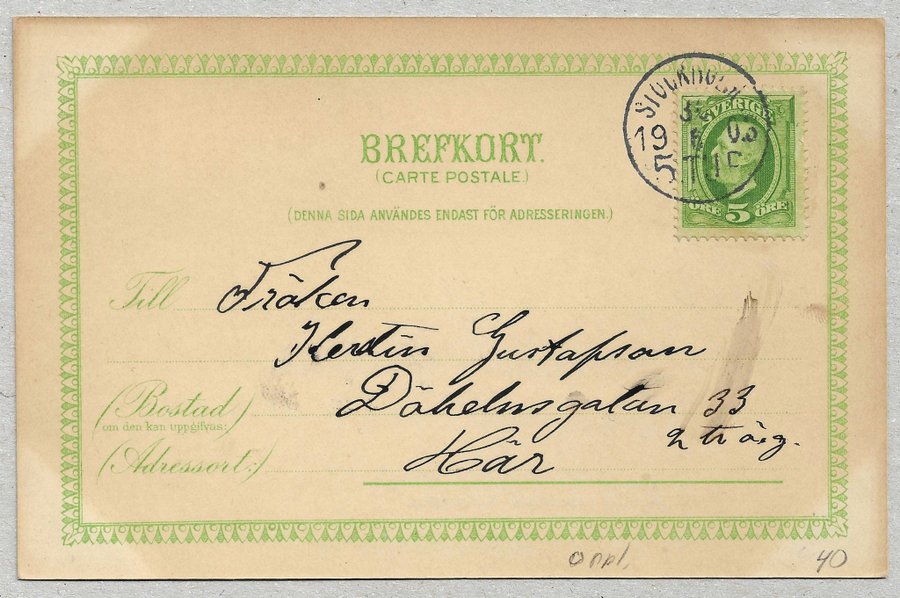 BREFKORT.
(CARTE POSTALE.)
(DENNA SIDA ANVÄNDES ENDAST FÖR ADRESSERINGEN.)
STOCKHOLM
19 03
5 TUR
SVERIGE
ÖRE 5 ÖRE
Till Fröken
Kerstin Gustafson
(Bostad) Döbelnsgatan 33
om den kan uppgifvas:
2 tr
(Adressort:) Här
40